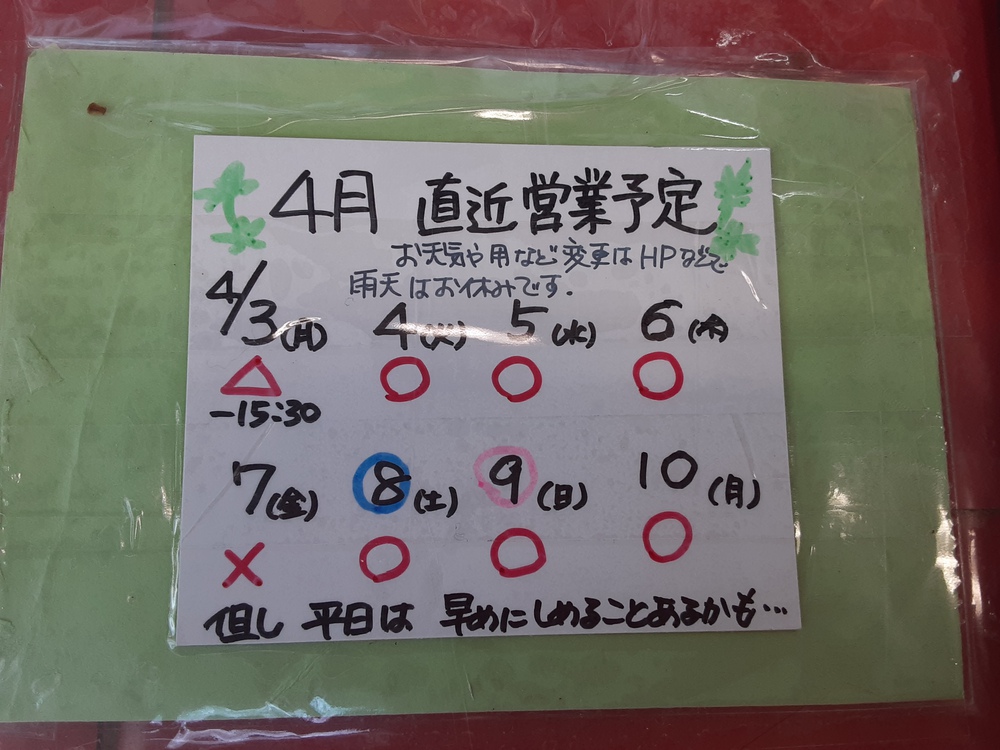 4月 直近営業予定
お天気や用など変更はHPなどで
雨天はお休みです.
4/3(月) 4(火) 5(水) 6(木)
△ ○ ○ ○
-15:30
7(金) 8(土) 9(日) 10(月)
× ○ ○ ○
但し 平日は 早めにしめることあるかも…